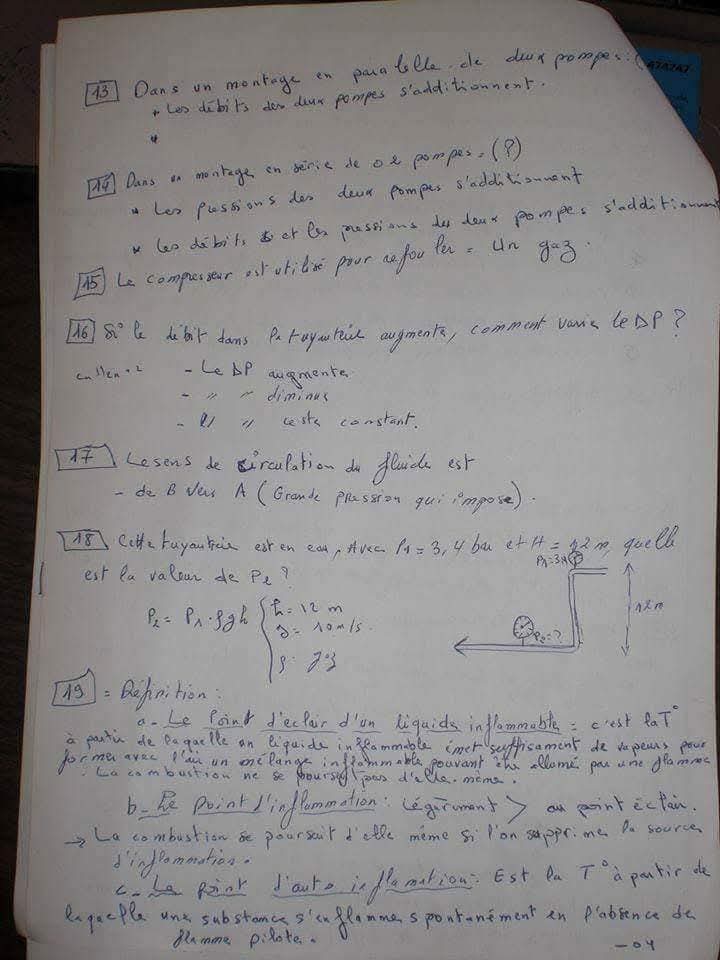 13 Dans un montage en parallelle de deux pompes : (
* Les débits des deux pompes s'additionnent.
*
14 Dans un montage en série de 02 pompes = (?)
* Les pressions des deux pompes s'additionnent
* Les débits et les pressions des deux pompes s'additionnent
15 Le compresseur est utilisé pour refouler = un gaz.
16 Si le débit dans la tuyauterie augmente, comment varie le DP ?
- Le DP augmente
- " " diminue
- " " reste constant.
17 Le sens de circulation du fluide est
- de B vers A (Grande pression qui impose).
18 Cette tuyauterie est en eau, Avec P1 = 3,4 bar et H = 12 m, quelle
est la valeur de P2 ?
P2 = P1 . ρgh { h = 12 m
g = 10 m/s.
ρ =
P2 = ?
12m
19 = Définition :
a - Le Point d'eclair d'un liquide inflammable = c'est la T°
à partir de laquelle un liquide inflammable émet suffisament de vapeurs pour
former avec l'air un mélange inflammable pouvant être allumé par une flamme
. La combustion ne se poursuit pas d'elle même.
b - Le Point d'inflammation : Légèrement > au point éclair.
→ La combustion se poursuit d'elle même si l'on supprime la source
d'inflammation.
c - Le point d'auto inflamation : Est la T° à partir de
laquelle une substance s'enflamme spontanément en l'absence de
flamme pilote.
- 04